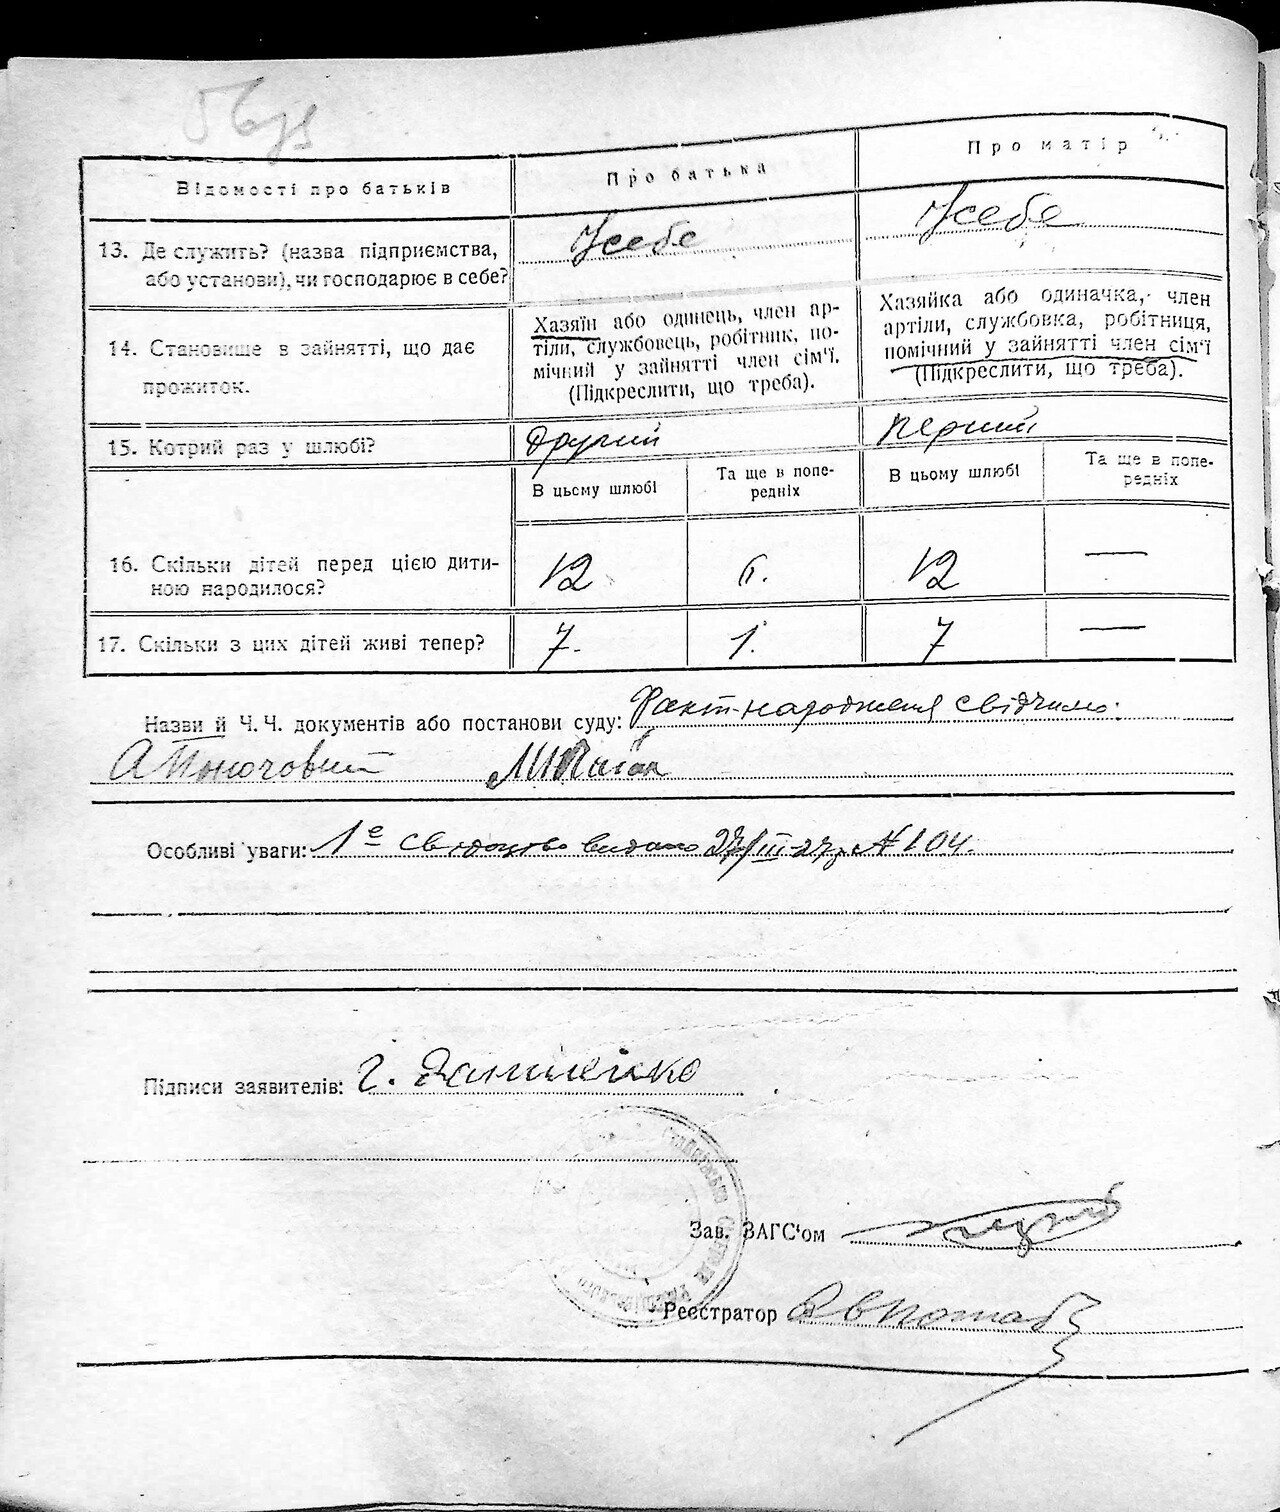 56зв
Відомості про батьків
Про батька
Про матір
13. Де служить? (назва підприємства, або установи), чи господарює в себе?
У себе
У себе
14. Становище в зайнятті, що дає прожиток.
Хазяїн або одинець, член ар-
тіли, службовець, робітник, по-
мічний у зайнятті член сім'ї.
(Підкреслити, що треба).
Хазяйка або одиначка, член
артіли, службовка, робітниця,
помічний у зайнятті член сім'ї
(Підкреслити, що треба).
15. Котрий раз у шлюбі?
Другий
Перший
В цьому шлюбі
Та ще в попе-
редніх
В цьому шлюбі
Та ще в попе-
редніх
16. Скільки дітей перед цією дити-
ною народилося?
12
6.
12
—
17. Скільки з цих дітей живі тепер?
7.
1.
7
—
Назви й Ч. Ч. документів або постанови суду: Факт народження свідчимо:
Особливі уваги: 1е свідоцтво видано 27/III-27р № 104.
Підписи заявителів: Г.
Зав. ЗАГС'ом
Реєстратор